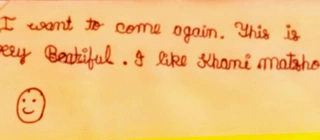 I want to come again. This is
ery Beatiful. I like Khami matsho